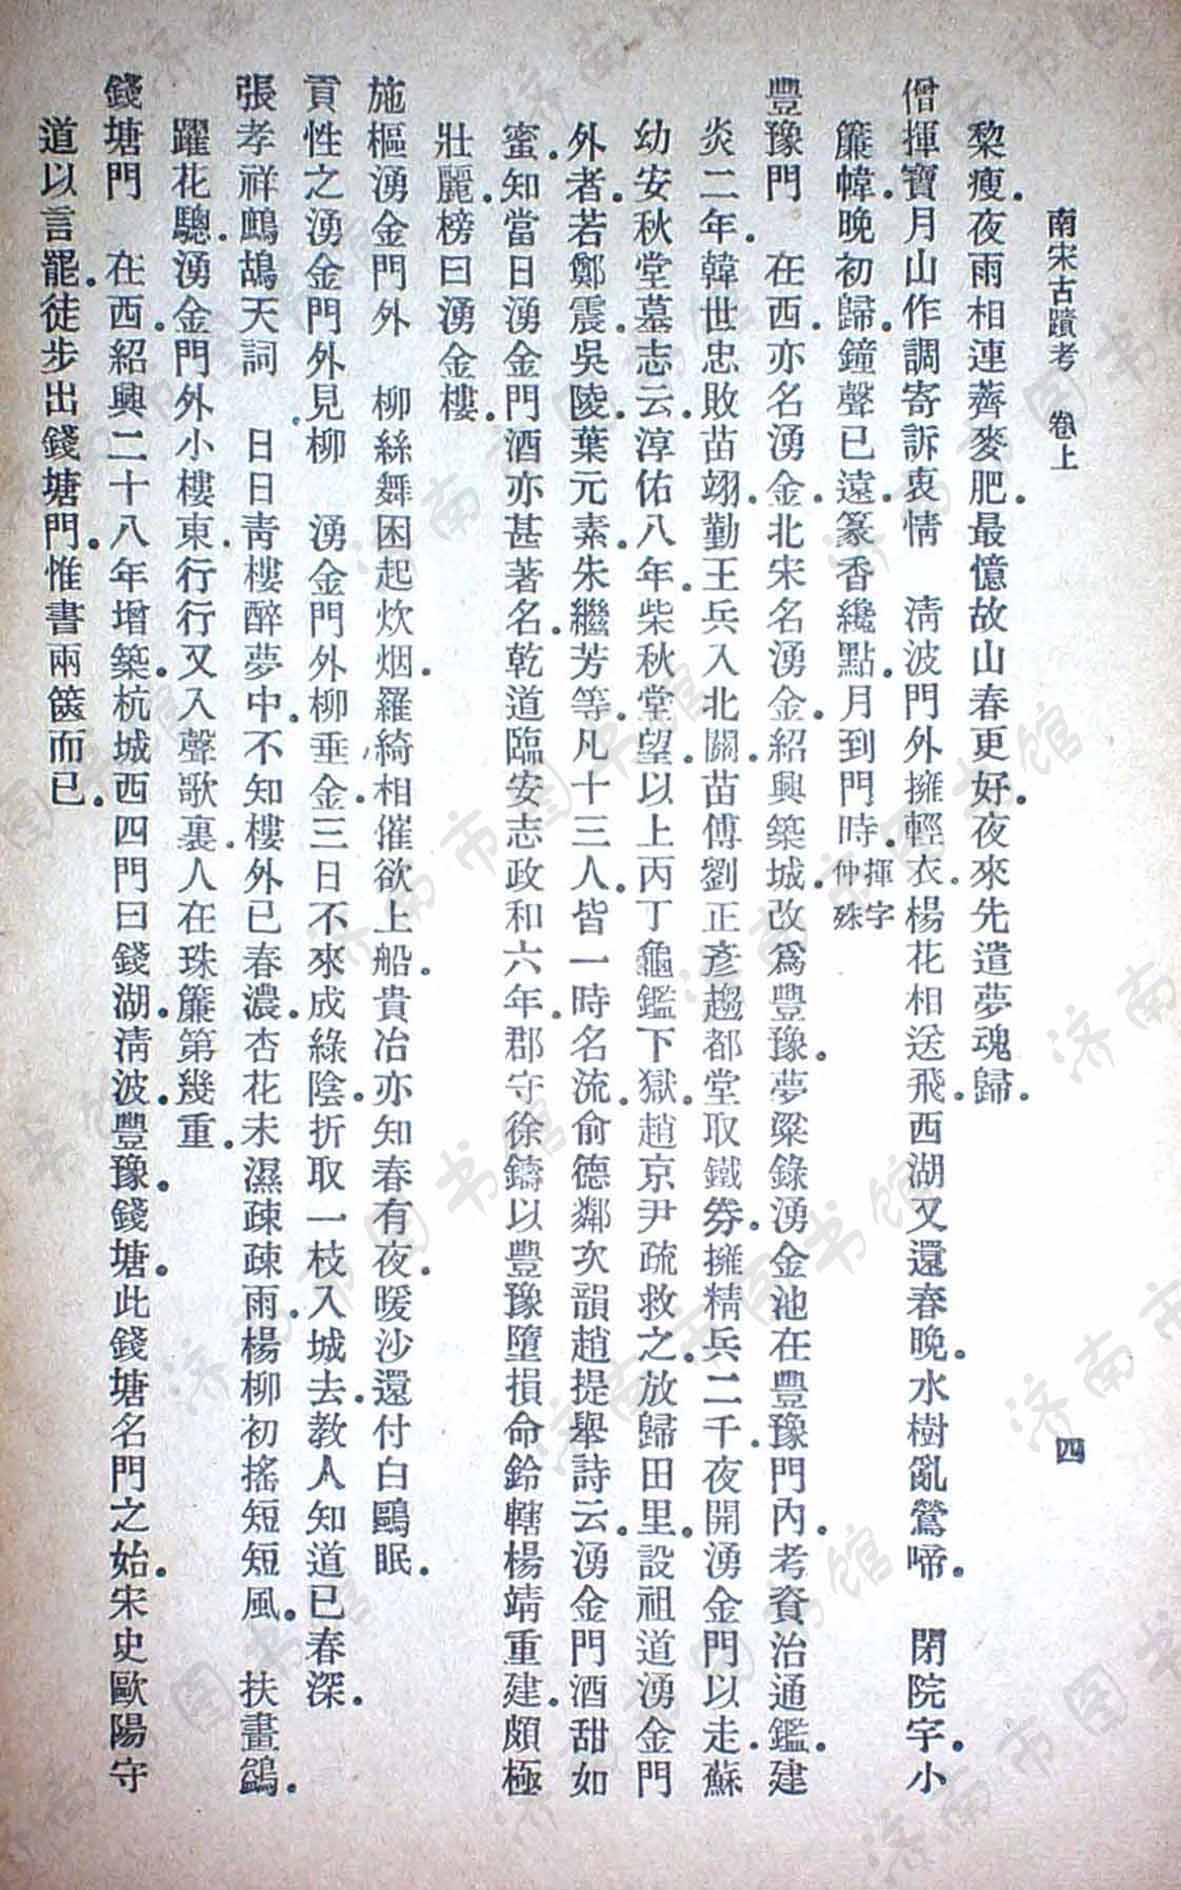 南宋古蹟考　卷上　四
棃瘦。夜雨相連薺麥肥。最憶故山春更好。夜來先遣夢魂歸。
僧揮寶月山作調寄訴衷情　清波門外擁輕衣。楊花相送飛。西湖又還春晚。水樹亂鶯啼。　閉院宇。小
簾幃。晚初歸。鐘聲已遠。篆香纔點。月到門時。揮字仲殊
豐豫門　在西。亦名湧金。北宋名湧金。紹興築城。改爲豐豫。夢粱錄湧金池在豐豫門內。考資治通鑑。建
炎二年。韓世忠敗苗翊。勤王兵入北關。苗傅劉正彥趨都堂取鐵券。擁精兵二千。夜開湧金門以走。蘇
幼安秋堂墓志云。淳佑八年。柴秋堂望。以上丙丁龜鑑下獄。趙京尹疏救之。放歸田里。設祖道湧金門
外者。若鄭震。吳陵。葉元素。朱繼芳等。凡十三人。皆一時名流。俞德鄰次韻趙提舉詩云。湧金門酒甜如
蜜。知當日湧金門酒亦甚著名。乾道臨安志政和六年。郡守徐鑄以豐豫墮損命鈐轄楊靖重建。頗極
壯麗。榜曰湧金樓。
施樞湧金門外　柳絲舞困起炊烟。羅綺相催欲上船。貴冶亦知春有夜。暖沙還付白鷗眠。
貢性之湧金門外見柳　湧金門外柳垂金。三日不來成綠陰。折取一枝入城去。教人知道已春深。
張孝祥鷓鴣天詞　日日青樓醉夢中。不知樓外已春濃。杏花未濕疎疎雨。楊柳初搖短短風。　扶畫鷁。
躍花驄。湧金門外小樓東。行行又入聲歌裏。人在珠簾第幾重。
錢塘門　在西。紹興二十八年增築。杭城西四門曰錢湖。清波。豐豫。錢塘。此錢塘名門之始。宋史歐陽守
道以言罷。徒步出錢塘門。惟書兩篋而已。